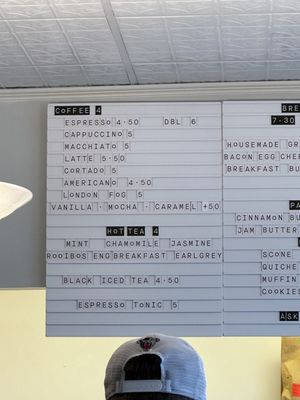 COFFEE 4
ESPRESSO 4.50 DBL 6
CAPPUCCINO 5
MACCHIATO 5
LATTE 5.50
CORTADO 5
AMERICANO 4.50
LONDON FOG 5
VANILLA · MOCHA · CARAMEL +50
HOT TEA 4
MINT CHAMOMILE JASMINE
ROOIBOS ENG BREAKFAST EARLGREY
BLACK ICED TEA 4.50
ESPRESSO TONIC 5
BRE
7.30
HOUSEMADE GR
BACON EGG CHEE
BREAKFAST BU
PA
CINNAMON BU
JAM BUTTER
SCONE
QUICHE
MUFFIN
COOKIES
ASK